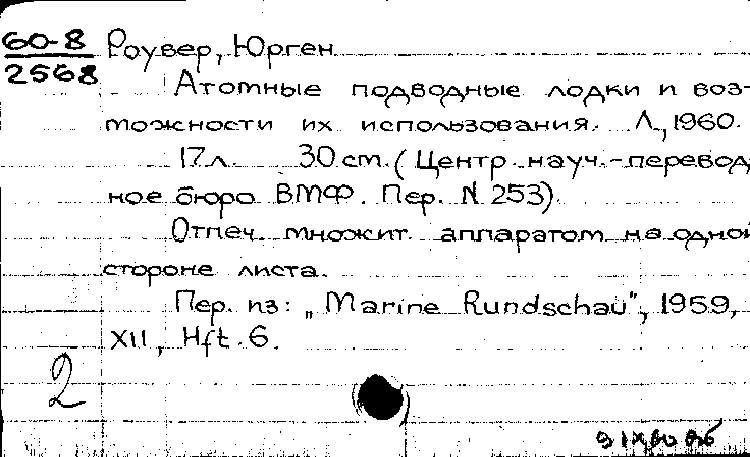 60-8
2568
Роувер, Юрген
Атомные подводные лодки и воз-
можности их использования. Л., 1960.
17 л. 30 см. (Центр. науч.-перевод
ное бюро ВМФ. Пер. N 253).
Отпеч. множит. аппаратом на одной
стороне листа.
Пер. из: „Marine Rundschau", 1959,
XII, Hft. 6.
2
9 IX 60